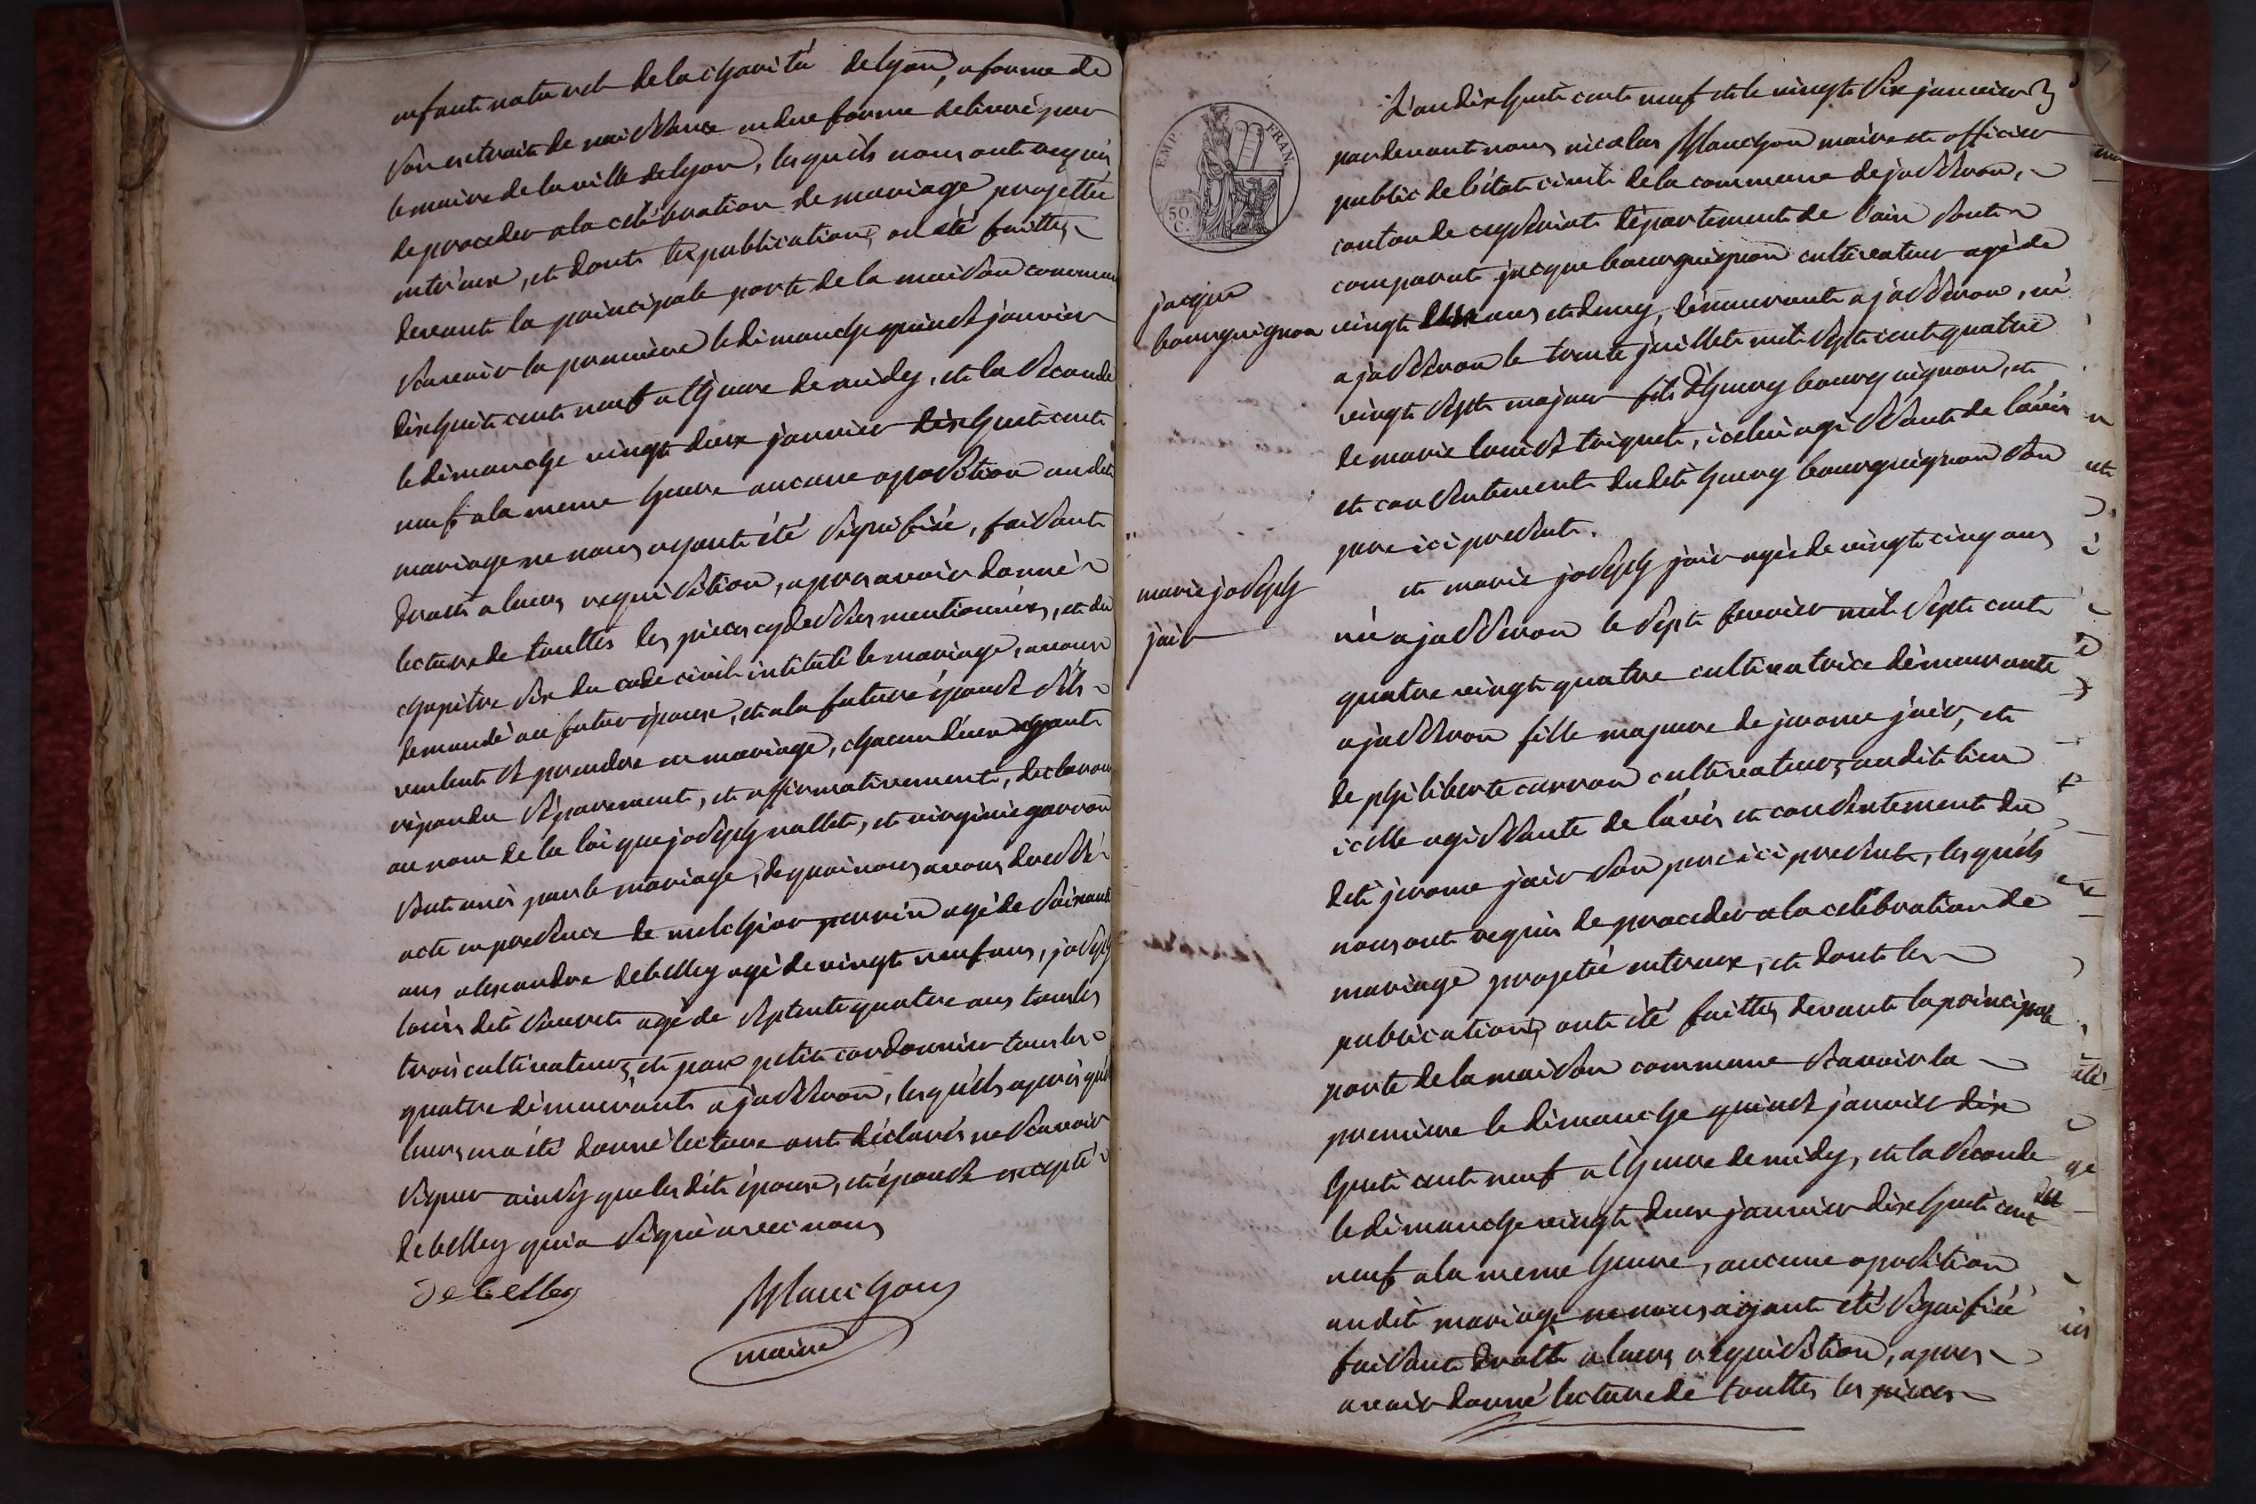 enfant naturel de la charité de lyon, a forme de
son extrait de naissance en due forme delivré par
le maire de la ville de lyon, lesquels nous ont requis
de proceder a la célébration de mariage projettée
entr'eux, et dont les publications on été faittes
devant la principale porte de la maison commune
scavoir la premiere le dimanche quinze janvier
dix huit cent neuf a l'heure de midy, et la seconde
le dimanche vingt deux janvier dix huit cent
neuf a la meme heure aucune oposition audit
mariage ne nous ayant été signifiée, faisant
droit a leurs requisition, apres avoir donné
lecture de touttes les pieces cy dessus mentionnées, et du
chapitre six du code civil intitulé le mariage, avons
demandé au futur époux, et a la future épouse s'ils
veulent se prendre en mariage, chacun d'eux ayant
répondu séparement, et affirmativement, declarons
au nom de la loi que joseph vallet, et virginie garron
sont unis par le mariage, de quoi nous avons dressé
acte en presence de melchior perrin agé de soixante
ans alexandre debelley agé de vingt neuf ans, joseph
louis dit sauret agé de septente quatre ans tous les
trois cultivateurs, et jean petit cordonnier tous les
quatre démeurants a jasseron, lesquels apres qu'il
leurs en a été donné lecture ont déclarés ne scavoir
signer ainsy que les dits époux, et épouse excepté
debelley qui a signé avec nous
debelley
Manchon
maire
EMP. FRAN.
50 C.
L'an dix huit cent neuf et le vingt six janvier
pardevant nous nicolas Manchon maire et officier
public de l'état civil de la commune de jasseron,
canton de ceyseriat département de l'ain sont
comparut jacque bourguignon cultivateur agé de
jacque
bourguignon
vingt ans et demy, démeurant a jasseron, né
a jasseron le trente juillet mil sept cent quatre
vingt sept majeur fils d'henry bourguignon, et
de marie louise triquet, icelui agissant de l'avis
et consentement dudit henry bourguignon son
pere ici present.
marie joseph
jair
et marie joseph jair agée de vingt cinq ans
née a jasseron le sept fevrier mil sept cent
quatre vingt quatre cultivatrice démeurante
a jasseron fille majeure de jerome jair, et
de philiberte carron cultivateurs audit lieu
icelle agissante de l'avis et consentement du
dit jerome jair son pere ici present, lesquels
nous ont requis de proceder a la celébration de
mariage projetée entreux, et dont les
publications ont été faittes devant la principale
porte de la maison commune scavoir la
premiere le dimanche quinze janvier dix
huit cent neuf a l'heure de midy, et la seconde
le dimanche vingt deux janvier dix huit cent
neuf a la meme heure, aucune oposition
audit mariage ne nous ayant été signifiée
faisant droit a leurs réquisition, apres
avoir donné lecture de touttes les pieces